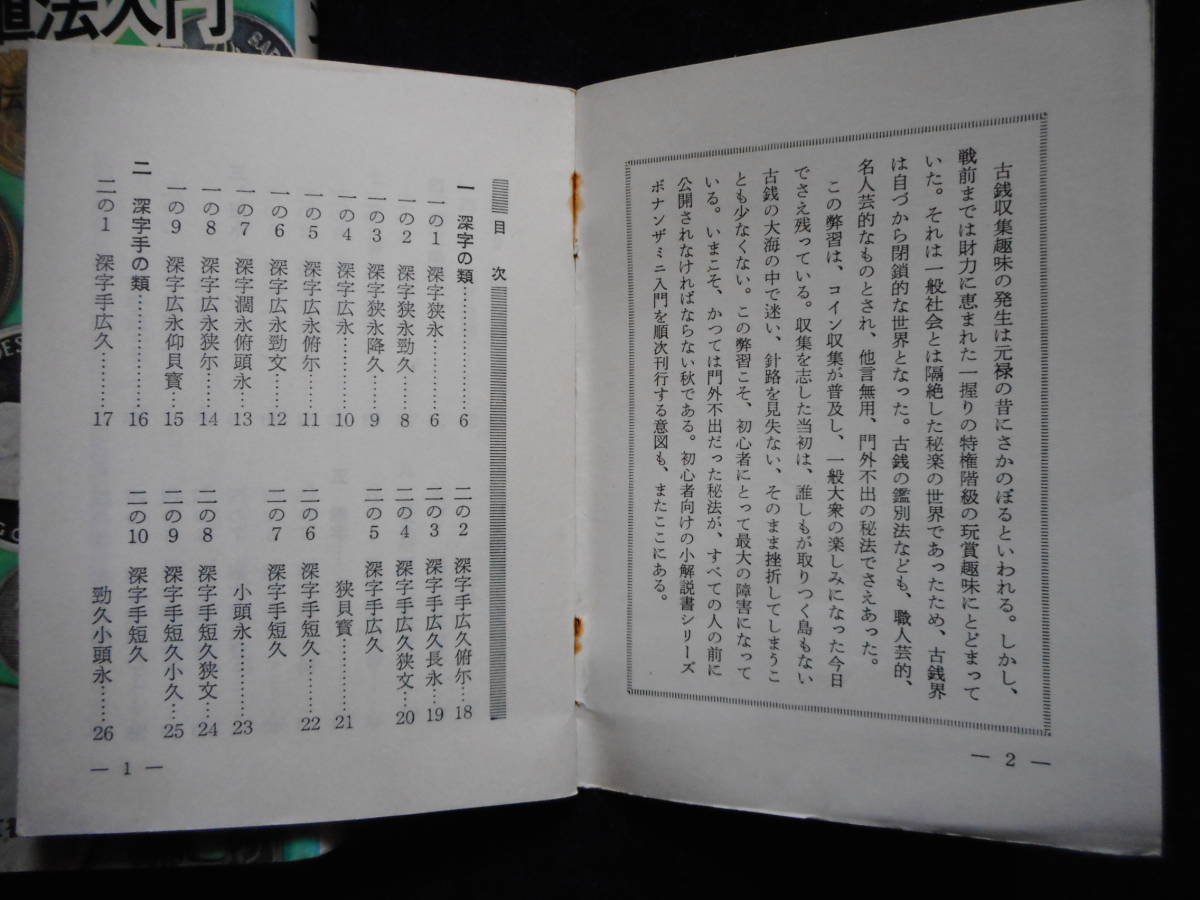 古銭収集趣味の発生は元禄の昔にさかのぼるといわれる。しかし、
戦前までは財力に恵まれた一握りの特権階級の玩賞趣味にとどまって
いた。それは一般社会とは隔絶した秘楽の世界であったため、古銭界
は自づから閉鎖的な世界となった。古銭の鑑別法なども、職人芸的、
名人芸的なものとされ、他言無用、門外不出の秘法でさえあった。
この弊習は、コイン収集が普及し、一般大衆の楽しみになった今日
でさえ残っている。収集を志した当初は、誰しもが取りつく島もない
古銭の大海の中で迷い、針路を見失ない、そのまま挫折してしまうこ
とも少なくない。この弊習こそ、初心者にとって最大の障害になって
いる。いまこそ、かつては門外不出だった秘法が、すべての人の前に
公開されなければならない秋である。初心者向けの小解説書シリーズ
ボナンザミニ入門を順次刊行する意図も、またここにある。
— 2 —
目次
一 深字の類………………6
一の1 深字狭永…………6
一の2 深字狭永勁久……8
一の3 深字狭永降久……9
一の4 深字広永…………10
一の5 深字広永俯尓……11
一の6 深字広永勁文……12
一の7 深字濶永俯頭永…13
一の8 深字広永狭尓……14
一の9 深字広永仰貝寳…15
二 深字手の類……………16
二の1 深字手広久………17
二の2 深字手広久俯尓…18
二の3 深字手広久長永…19
二の4 深字手広久狭文…20
二の5 深字手広久
狭貝寳…………21
二の6 深字手短久………22
二の7 深字手短久
小頭永…………23
二の8 深字手短久狭文…24
二の9 深字手短久小久…25
二の10 深字手短久
勁久小頭永……26
— 1 —
法入門